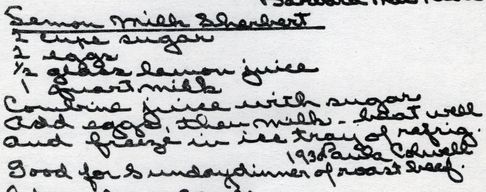 Lemon Milk Sherbert
2 cups sugar
2 eggs
1/2 glass lemon juice
1 quart milk
Combine juice with sugar
Add eggs, then milk - beat well
and freeze in ice tray of refrig.
193 Paula
Good for Sunday dinner of roast beef.